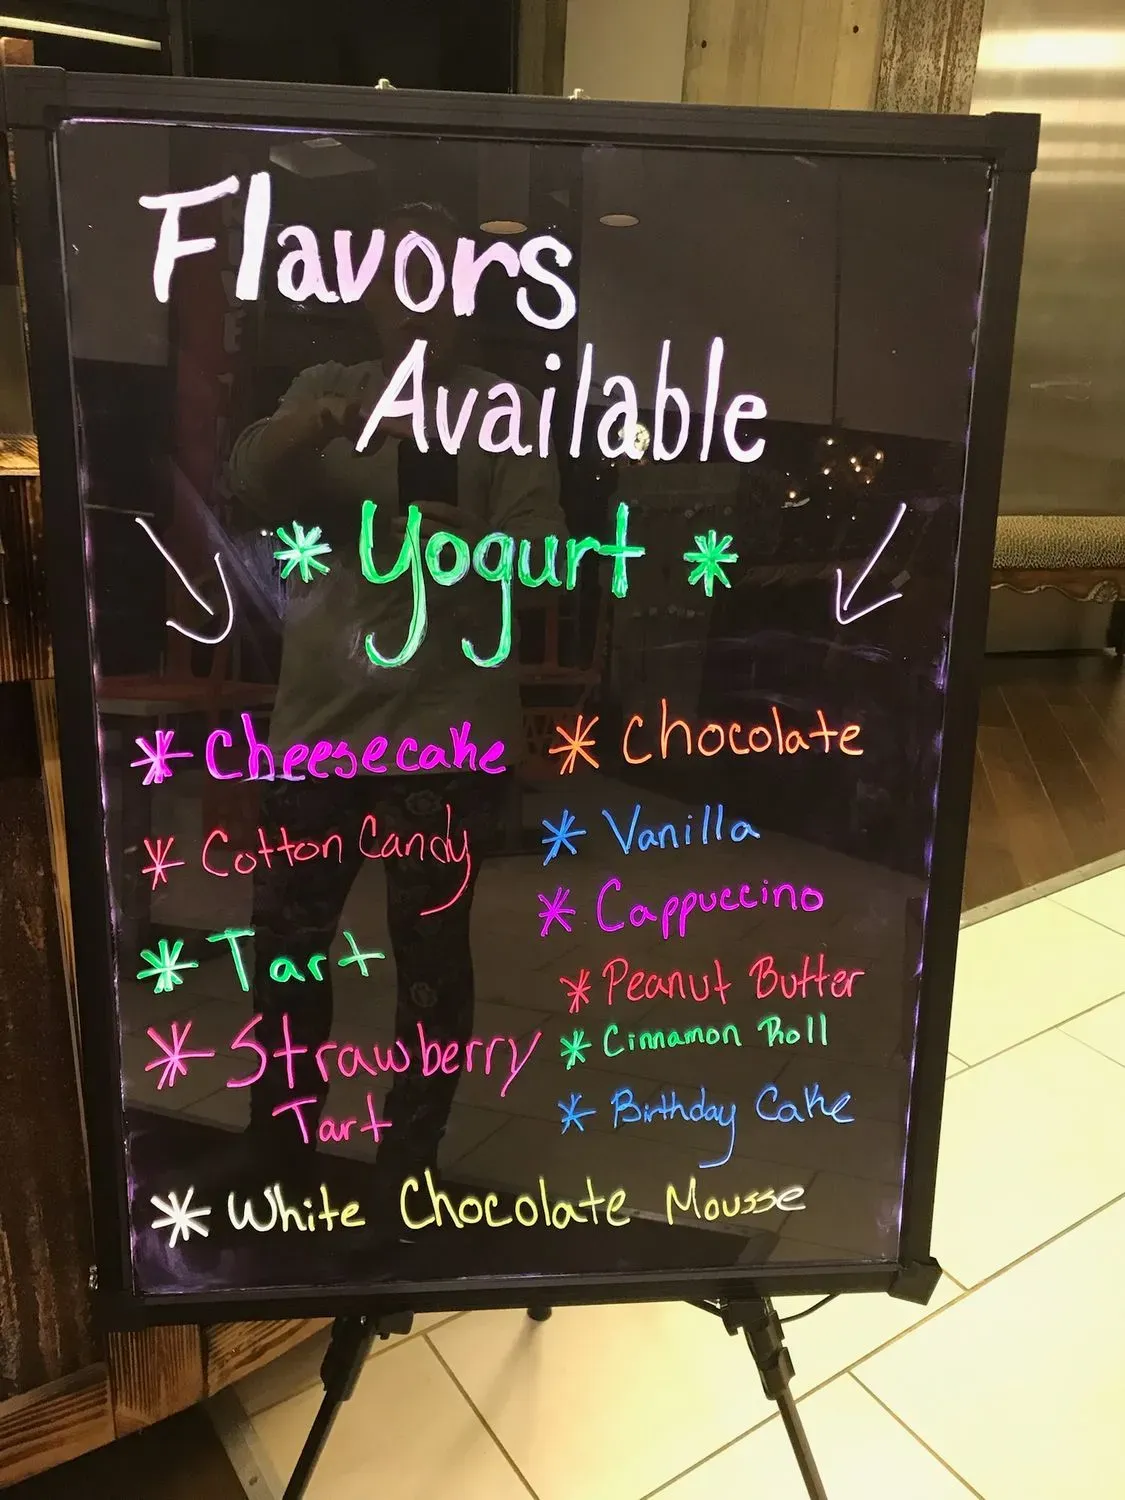 Flavors
Available
* Yogurt *
* Cheesecake
* Cotton Candy
* Tart
* Strawberry
Tart
* Chocolate
* Vanilla
* Cappuccino
* Peanut Butter
* Cinnamon Roll
* Birthday Cake
* White Chocolate Mousse